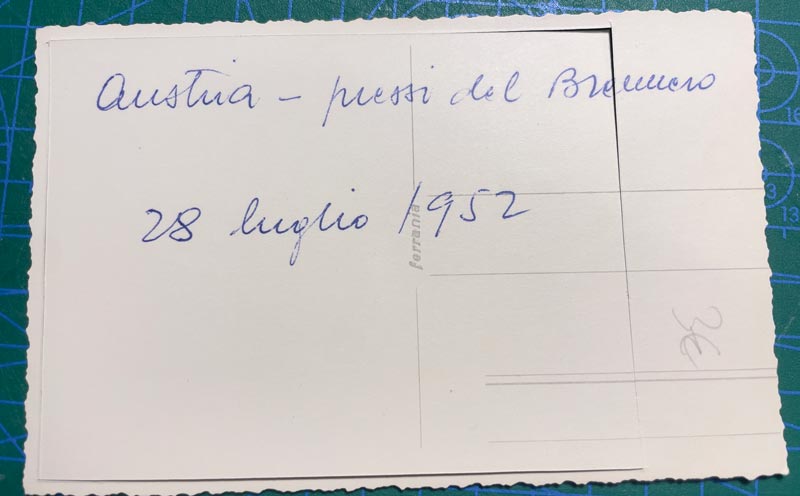 Austria - pressi del Brennero
28 luglio 1952
ferrania
3€